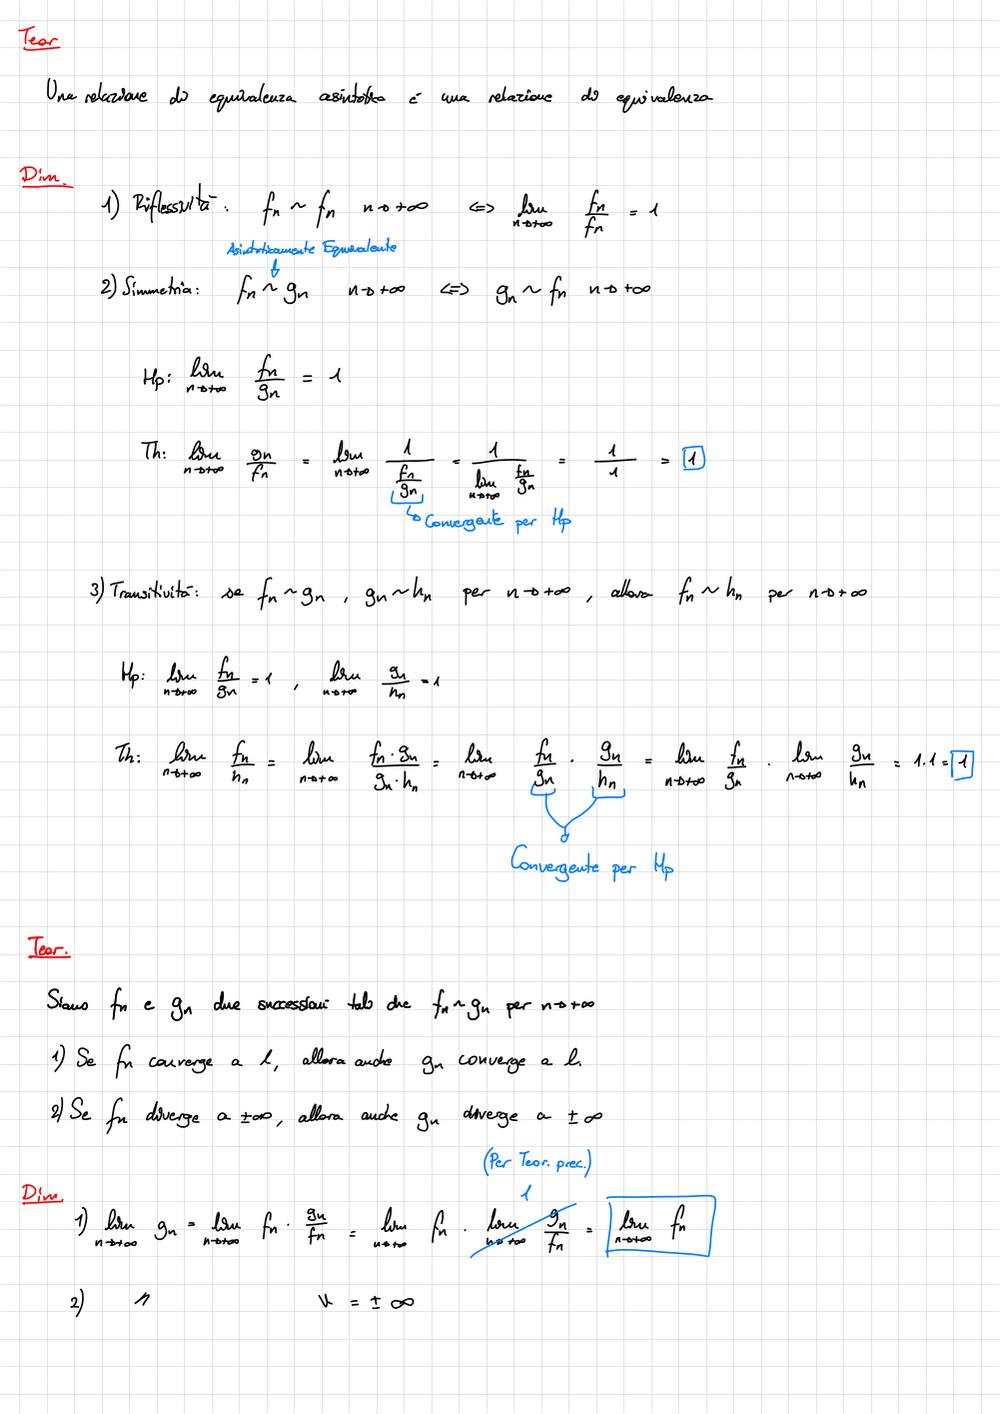 Teor
Una relazione di equivalenza asintotica è una relazione di equivalenza
Dim.
1) Riflessività: fn ~ fn n→+∞ <=> lim n→+∞ fn/fn = 1
Asintoticamente Equivalente
2) Simmetria: fn ~ gn n→+∞ <=> gn ~ fn n→+∞
Hp: lim n→+∞ fn/gn = 1
Th: lim n→+∞ gn/fn = lim n→+∞ 1/(fn/gn) = 1/(lim n→+∞ fn/gn) = 1/1 = 1
Convergente per Hp
3) Transitività: se fn ~ gn, gn ~ hn per n→+∞, allora fn ~ hn per n→+∞
Hp: lim n→+∞ fn/gn = 1, lim n→+∞ gn/hn = 1
Th: lim n→+∞ fn/hn = lim n→+∞ (fn·gn)/(gn·hn) = lim n→+∞ fn/gn · gn/hn = lim n→+∞ fn/gn · lim n→+∞ gn/hn = 1·1 = 1
Convergente per Hp
Teor.
Siano fn e gn due successioni tali che fn ~ gn per n→+∞
1) Se fn converge a l, allora anche gn converge a l.
2) Se fn diverge a ±∞, allora anche gn diverge a ±∞
(Per Teor. prec.)
1
Dim.
1) lim n→+∞ gn = lim n→+∞ fn · gn/fn = lim n→+∞ fn · lim n→+∞ gn/fn = lim n→+∞ fn
2) " " = ±∞